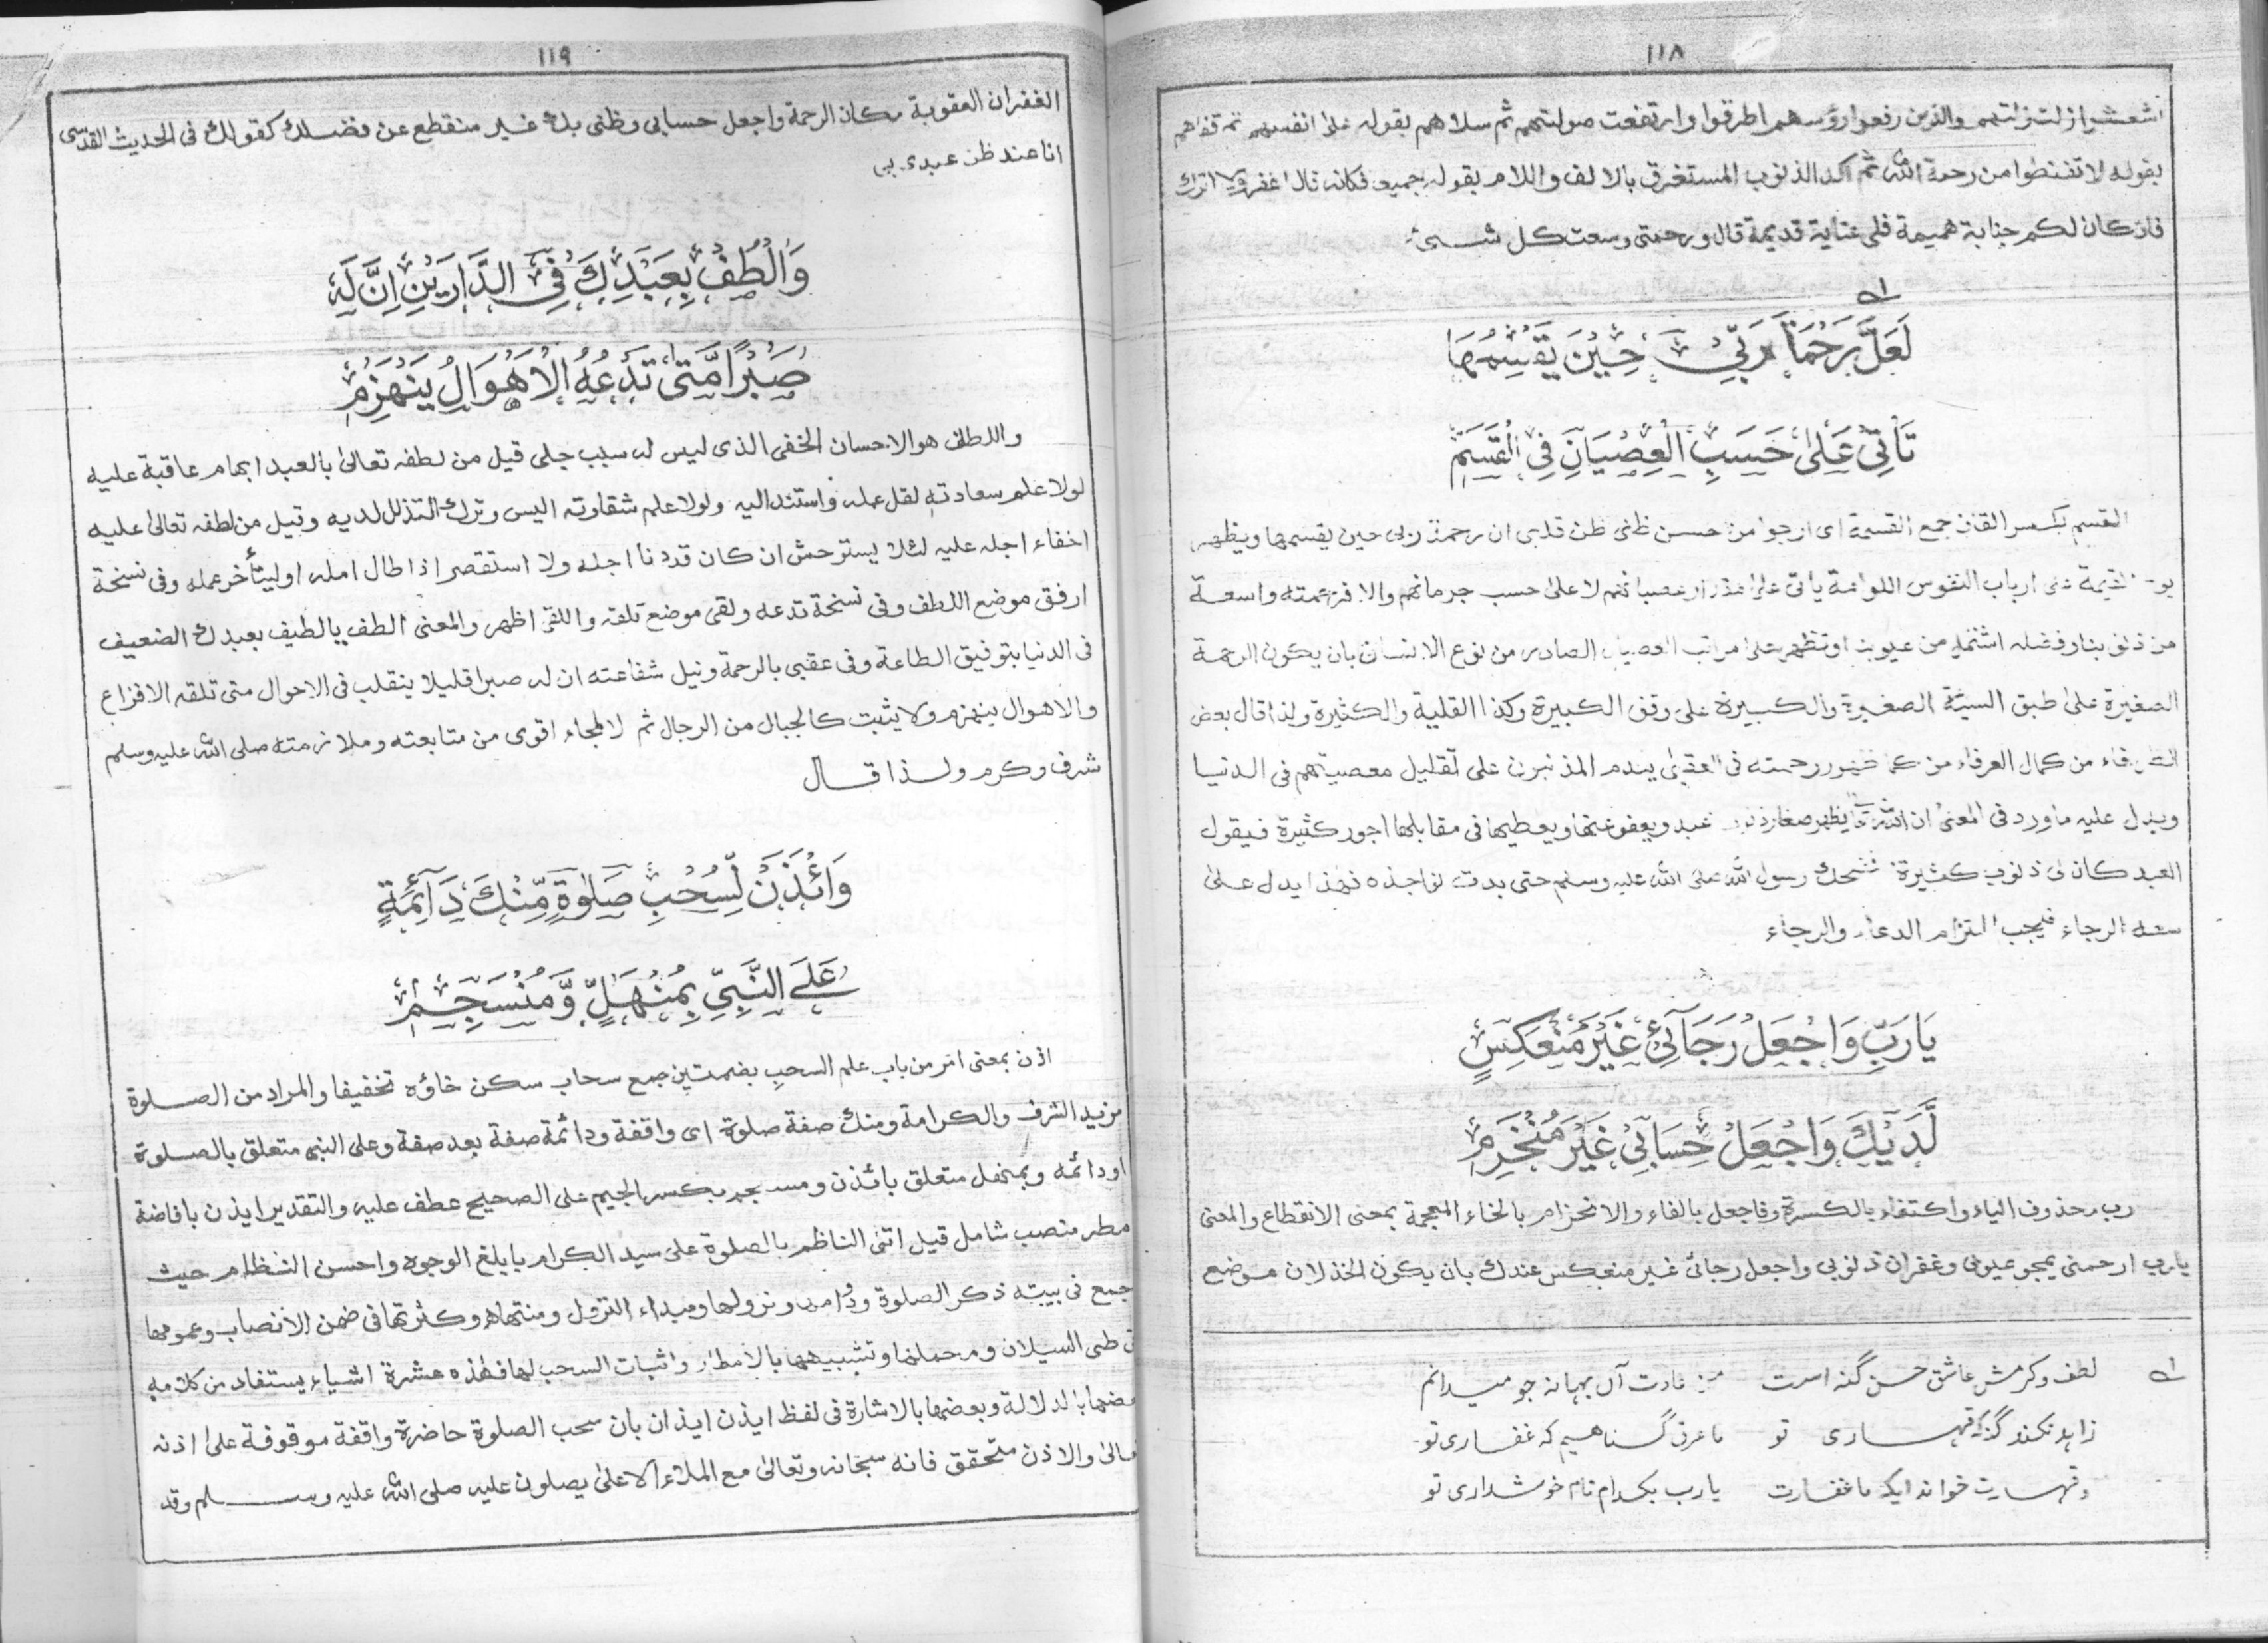 ١١٨
والذين رفعوا رؤسهم اطرقوا وارتفعت صولتهم ثم سلاهم بقوله على انفسهم ثم
بقوله لا تقنطوا من رحمة الله ثم اكد الذنوب المستغرق بالالف واللام بقوله جميعا فكانه قال اغفر ولا اترك
فان كان لكم جناية فلى عناية قديمة قال ورحمتى وسعت كل شىء
لَعَلَّ رَحْمَةَ رَبِّىْ حِيْنَ يَقْسِمُهَا
تَأْتِىْ عَلىٰ حَسَبِ الْعِصْيَانِ فِى الْقِسَمِ
القسم بكسر القاف جمع القسمة اى ارجوا من حسن ظنى ظن قلبى ان رحمة ربى حين يقسمها ويظهر
ارباب النفوس اللوامة ياتى على عصيانهم لا على حسب جرمانهم والا واسعة
من وفضله من عيوبنا او تظهر على مراتب العصيان الصادر من نوع الانسان بان يكون الرحمة
الصغيرة على طبق السيئة الصغيرة والكبيرة على وفق الكبيرة وكذا القليلة والكثيرة ولذا قال بعض
من كمال العرفاء من رحمته فى العقبى يندم المذنبون على تقليل معصيتهم فى الدنيا
ويدل عليه ما ورد فى المعنى ان الله يظهر صغار ذنوب عبد ويعفو عنها ويعطيها فى مقابلها اجور كثيرة فيقول
العبد كان لى ذنوب كثيرة فضحك رسول الله صلى الله عليه وسلم حتى بدت نواجذه فهذا يدل على
سعة الرجاء فيجب التزام الدعاء والرجاء
يَا رَبِّ وَاجْعَلْ رَجَآئِىْ غَيْرَ مُنْعَكِسٍ
لَّدَيْكَ وَاجْعَلْ حِسَابِىْ غَيْرَ مُنْخَرِمٖ
رب محذوف الياء واكتفاء بالكسرة وفاجعل بالفاء والانخرام بالخاء المعجمة بمعنى الانقطاع والمعنى
يا رب ارحمنى بمحو عيوبى وغفران ذنوبى واجعل رجائى غير منعكس عندك بان يكون الخذلان موضع
لطف وكرمش عاشق حسن گنه است من عادت آں بہانہ جو میدانم
زاہد نکند گنہ کہ قہاری تو ما غرق گناہیم کہ غفاری تو
او قہارت خواند ایک ما غفارت یارب بکدام نام خوشداری تو
١١٩
الغفران العقوبة مكان الرحمة واجعل حسابى وظنى بك غير منقطع عن فضلك كقولك فى الحديث القدسى
انا عند ظن عبدى بى
وَالْطُفْ بِعَبْدِكَ فِى الدَّارَيْنِ اِنَّ لَهٗ
صَبْرًا مَّتىٰ تَدْعُهُ الْاَهْوَالُ يَنْهَزِمٖ
واللطف هو الاحسان الخفى الذى ليس له سبب جلى قيل من لطفه تعالى بالعبد ابهام عاقبة عليه
لولا علم سعادته لقل عمله واستند اليه ولولا علم شقاوته اليس وترك التذلل لديه وقيل من لطفه تعالى عليه
اخفاء اجله عليه لئلا يستوحش ان كان قد دنا اجله ولا استقصر اذا طال امله او ليتأخر عمله وفى نسخة
ارفق موضع اللطف وفى نسخة تدعه ولقى موضع تلقه واللقى اظهر والمعنى الطف يا لطيف بعبدك الضعيف
فى الدنيا بتوفيق الطاعة وفى عقبى بالرحمة ونيل شفاعته ان له صبرا قليلا ينقلب فى الاحوال متى تلقه الافزاع
والاهوال ينهزم ولا يثبت كالجبال من الرجال ثم لا ملجاء اقوى من متابعته وملازمته صلى الله عليه وسلم
شرف وكرم ولذا قال
وَائْذَنْ لِّسُحْبِ صَلوٰةٍ مِّنْكَ دَآئِمَةٍ
عَلَى النَّبِىِّ بِمُنْهَلٍّ وَّمُنْسَجِمٖ
اذن بمعنى امر من باب علم السحب بضمتين جمع سحاب سكن خاؤه تخفيفا والمراد من الصلوة
مزيد الشرف والكرامة ومنك صفة صلوة اى واقفة ودائمة صفة بعد صفة وعلى النبى متعلق بالصلوة
او دائمه وبمنهل متعلق بائذن ومنسجم بكسر الجيم على الصحيح عطف عليه والتقدير ايذن بافاضة
مطر منصب شامل قيل اتنى الناظم بالصلوة على سيد الكرام بابلغ الوجوه واحسن النظام حيث
جمع فى بيته ذكر الصلوة ودوامها ونزولها ومبداء النزول ومنتهاه وكثرتها فى ضمن الانصاب وعمومها
طى السيلان ومحملها وتشبيهها بالامطار واثبات السحب لها فهذه عشرة اشياء يستفاد من كلامه
بعضها بالدلالة وبعضها بالاشارة فى لفظ ايذن ايذان بان سحب الصلوة حاضرة واقفة موقوفة على اذنه
تعالى والاذن متحقق فانه سبحانه وتعالى مع الملاء الاعلى يصلون عليه صلى الله عليه وسلم وقد